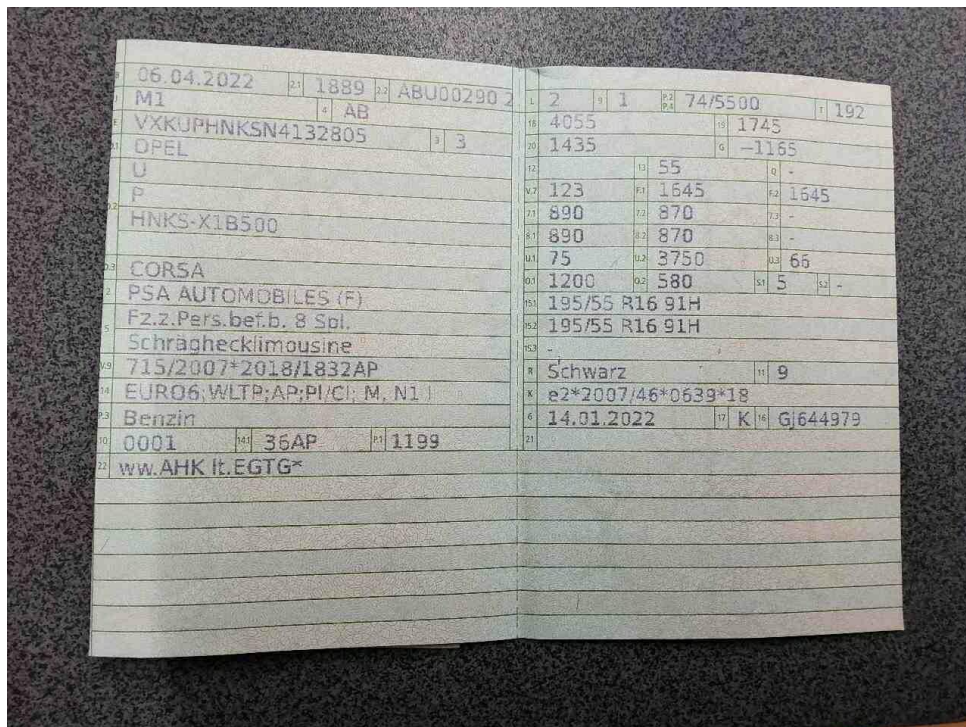 B 06.04.2022 2.1 1889 2.2 ABU00290 2
J M1 4 AB
E VXKUPHNKSN4132805 3 3
D.1 OPEL
U
D.2 P
HNKS-X1B500
D.3 CORSA
2 PSA AUTOMOBILES (F)
5 Fz.z.Pers.bef.b. 8 Spl.
Schräghecklimousine
V.9 715/2007*2018/1832AP
14 EURO6;WLTP;AP;PI/CI; M, N1 I
P.3 Benzin
10 0001 14.1 36AP P.1 1199
22 ww.AHK lt.EGTG*
L 2 9 1 P.2 P.4 74/5500 T 192
18 4055 19 1745
20 1435 G -1165
12 13 55 Q -
V.7 123 F.1 1645 F.2 1645
7.1 890 7.2 870 7.3 -
8.1 890 8.2 870 8.3 -
U.1 75 U.2 3750 U.3 66
O.1 1200 O.2 580 S.1 5 S.2 -
15.1 195/55 R16 91H
15.2 195/55 R16 91H
15.3 -
R Schwarz 11 9
K e2*2007/46*0639*18
6 14.01.2022 17 K 16 GJ644979
21